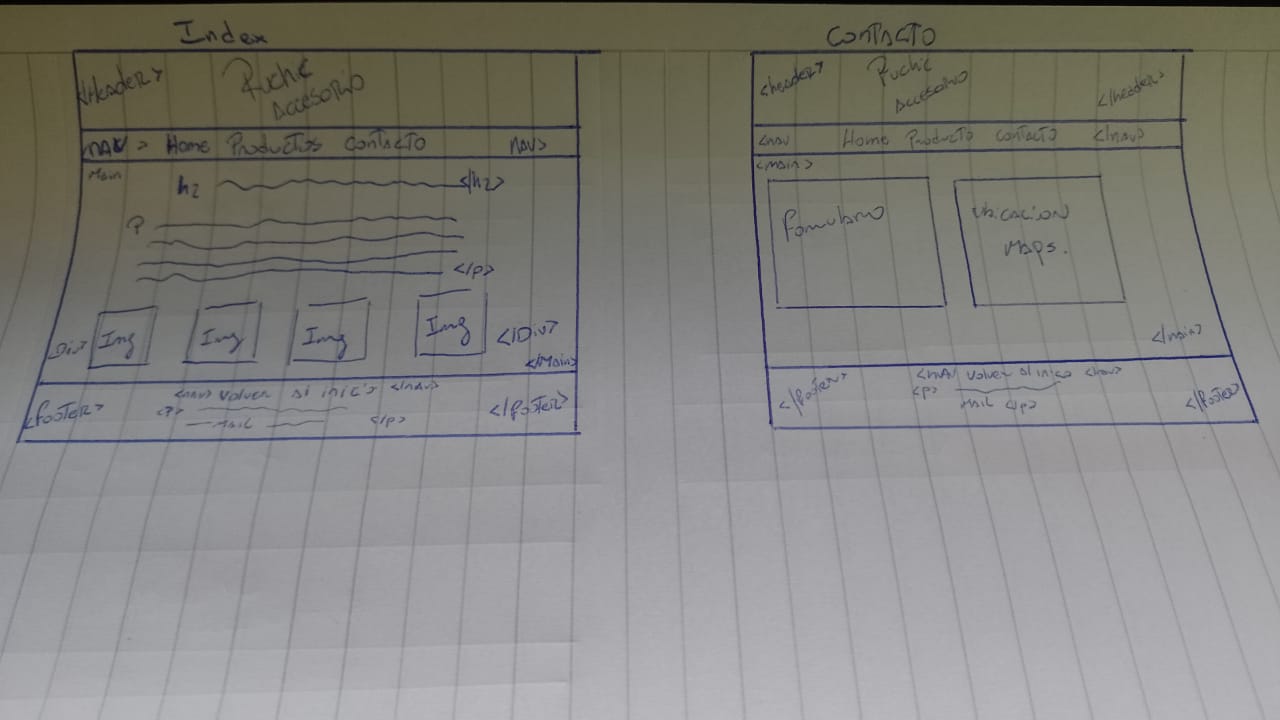 Index
<Header>
Ruche
Accesorio
nav > Home Productos Contacto nav>
Main
h2 </h2>
P
</p>
Div> Img Img Img Img </Div>
</Main>
<nav> volver al inicio </nav>
<footer> <P> </footer>
Mail </p>
Contacto
<header>
Ruche
Accesorio
</header>
<nav Home Producto Contacto </nav>
<Main>
Fomulario
Ubicacion
Maps.
</main>
<nav volver al inico </nav>
</footer> <p> </footer>
Mail </p>